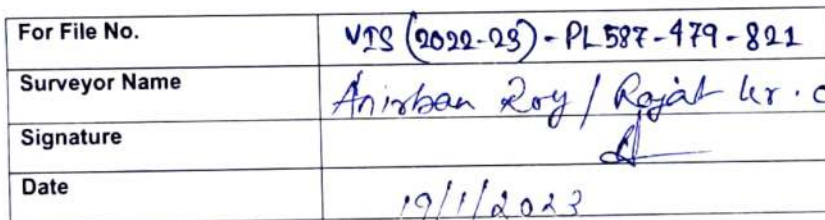 For File No. VIS (2022-23) - PL587-479-821
Surveyor Name Anirban Roy / Rajat Kr.
Signature
Date 19/1/2023